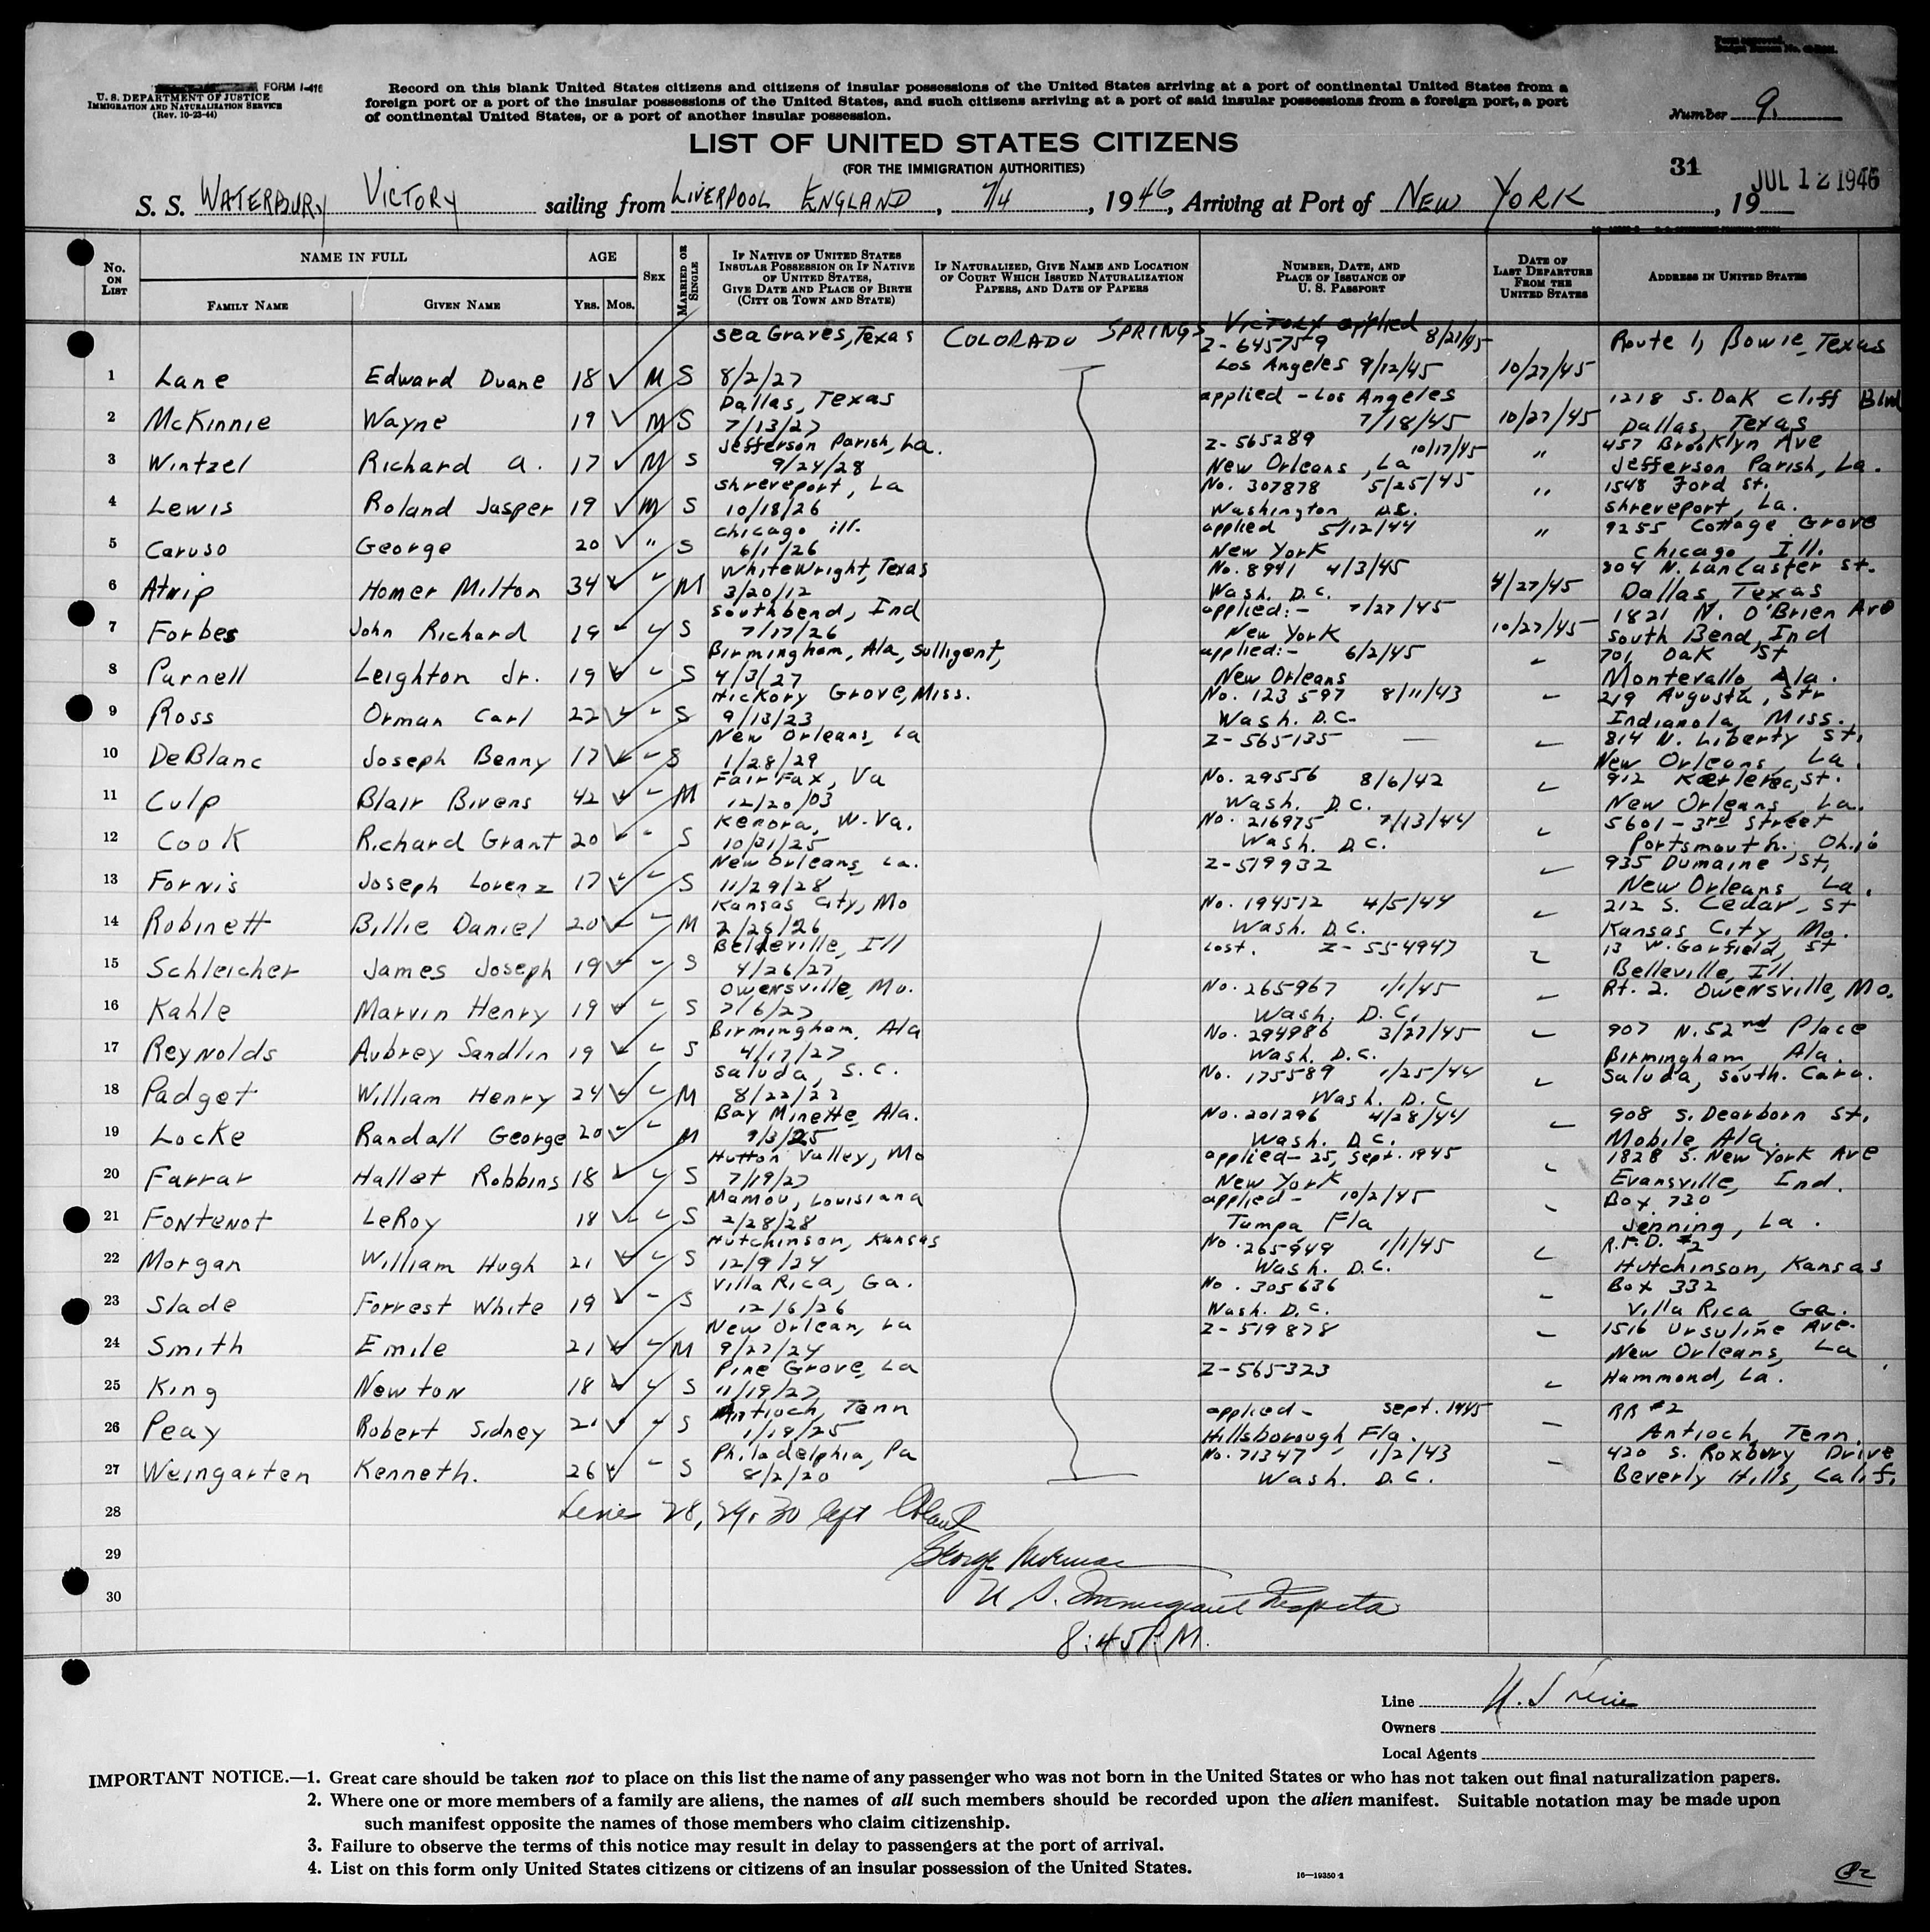 FORM I-416
U. S. DEPARTMENT OF JUSTICE
IMMIGRATION AND NATURALIZATION SERVICE
(Rev. 10-23-44)
Record on this blank United States citizens and citizens of insular possessions of the United States arriving at a port of continental United States from a
foreign port or a port of the insular possessions of the United States, and such citizens arriving at a port of said insular possessions from a foreign port, a port
of continental United States, or a port of another insular possession.
Number 9.
LIST OF UNITED STATES CITIZENS
(FOR THE IMMIGRATION AUTHORITIES)
31 JUL 12 1946
S. S. WATERBURY VICTORY sailing from LIVERPOOL ENGLAND, 7/4, 1946, Arriving at Port of NEW YORK, 19
No. ON LIST
NAME IN FULL
FAMILY NAME
GIVEN NAME
AGE
YRS. MOS.
SEX
MARRIED OR SINGLE
IF NATIVE OF UNITED STATES INSULAR POSSESSION OR IF NATIVE OF UNITED STATES, GIVE DATE AND PLACE OF BIRTH (CITY OR TOWN AND STATE)
IF NATURALIZED, GIVE NAME AND LOCATION OF COURT WHICH ISSUED NATURALIZATION PAPERS, AND DATE OF PAPERS
NUMBER, DATE, AND PLACE OF ISSUANCE OF U. S. PASSPORT
DATE OF LAST DEPARTURE FROM THE UNITED STATES
ADDRESS IN UNITED STATES
COLORADO SPRINGS Victory applied
Sea Graves, Texas Z-645759 8/21/45 Route 1, Bowie, Texas
1 Lane Edward Duane 18 ✓ M S 8/2/27 Los Angeles 9/12/45 10/27/45
Dallas, Texas applied - Los Angeles 1218 S. Oak Cliff Blvd
2 McKinnie Wayne 19 ✓ M S 7/13/27 7/18/45 10/27/45 Dallas, Texas
Jefferson Parish, La. Z-565289 10/17/45 457 Brooklyn Ave
3 Wintzel Richard A. 17 ✓ M S 9/24/28 New Orleans, La " Jefferson Parish, La.
Shreveport, La No. 307878 5/25/45 1548 Ford St.
4 Lewis Roland Jasper 19 ✓ M S 10/18/26 Washington D.C. " Shreveport, La.
Chicago ill. applied 5/12/44 9255 Cottage Grove
5 Caruso George 20 ✓ " S 6/1/26 New York " Chicago, Ill.
Whitewright, Texas No. 8941 4/3/45 304 N. Lancaster St.
6 Atnip Homer Milton 34 ✓ " M 3/20/12 Wash. D.C. 4/27/45 Dallas, Texas
Southbend, Ind applied:- 7/27/45 1821 N. O'Brien Ave
7 Forbes John Richard 19 ✓ " S 7/17/26 New York 10/27/45 South Bend, Ind
Birmingham, Ala, Sulligent, applied:- 6/2/45 701 Oak St
8 Purnell Leighton Jr. 19 ✓ " S 4/3/27 New Orleans " Montevallo Ala.
Hickory Grove, Miss. No. 123597 8/11/43 219 Augusta, Str
9 Ross Orman Carl 22 ✓ " S 9/13/23 Wash. D.C. " Indianola, Miss.
New Orleans, La Z-565135 — 814 N. Liberty St.
10 DeBlanc Joseph Benny 17 ✓ " S 1/28/29 " New Orleans, La.
Fair Fax, Va No. 29556 8/6/42 912 Kerlerec, St.
11 Culp Blair Bivens 42 ✓ " M 12/20/03 Wash. D.C. " New Orleans, La.
Kenora, W. Va. No. 216975 7/13/44 5601 - 3rd Street
12 Cook Richard Grant 20 ✓ " S 10/31/25 Wash. D.C. " Portsmouth, Ohio
New Orleans, La. Z-519932 935 Dumaine St,
13 Fornis Joseph Lorenz 17 ✓ " S 11/29/28 " New Orleans, La.
Kansas City, Mo No. 194512 4/5/44 212 S. Cedar, St
14 Robinett Billie Daniel 20 ✓ " M 2/26/26 Wash. D.C. " Kansas City, Mo.
Belleville, Ill Lost. Z-554947 13 W. Garfield, St
15 Schleicher James Joseph 19 ✓ " S 4/26/27 " Belleville, Ill.
Owensville, Mo. No. 265967 1/1/45 Rt. 2. Owensville, Mo.
16 Kahle Marvin Henry 19 ✓ " S 7/6/27 Wash. D.C. "
Birmingham, Ala No. 294986 3/27/45 907 N. 52nd Place
17 Reynolds Aubrey Sandlin 19 ✓ " S 4/17/27 Wash. D.C. " Birmingham, Ala.
Saluda, S.C. No. 175589 1/25/44 Saluda, South. Caro.
18 Padget William Henry 24 ✓ " M 8/22/22 Wash. D.C "
Bay Minette, Ala. No. 201296 4/28/44 908 S. Dearborn St.
19 Locke Randall George 20 ✓ " M 9/3/25 Wash. D.C. " Mobile, Ala.
Hutton Valley, Mo applied - 25, Sept. 1945 1828 S. New York Ave
20 Farrar Hallet Robbins 18 ✓ " S 7/19/27 New York " Evansville, Ind.
Mamou, Louisiana applied - 10/2/45 Box 730
21 Fontenot LeRoy 18 ✓ " S 2/28/28 Tampa, Fla " Jenning, La.
Hutchinson, Kansas No. 265949 1/1/45 R.F.D. #2
22 Morgan William Hugh 21 ✓ " S 12/9/24 Wash. D.C. " Hutchinson, Kansas
Villa Rica, Ga. No. 305636 Box 332
23 Slade Forrest White 19 ✓ " S 12/6/26 Wash. D.C. " Villa Rica Ga.
New Orlean, La Z-519878 1516 Ursuline Ave.
24 Smith Emile 21 ✓ " M 9/27/24 " New Orleans, La
Pine Grove, La Z-565323 Hammond, La.
25 King Newton 18 ✓ " S 11/19/27 "
Antioch, Tenn applied - Sept. 1945 RR #2
26 Peay Robert Sidney 20 ✓ " S 1/18/25 Hillsborough, Fla. " Antioch, Tenn.
Philadelphia, Pa No. 71347 1/2/43 420 S. Roxbury Drive
27 Weingarten Kenneth. 26 ✓ " S 8/2/20 Wash. D.C. " Beverly Hills, Calif.
28 Lines 28, 29, 30 left Blank
29 George
30 U S. Immigrant Inspector
8:45 P.M.
Line
Owners
Local Agents
IMPORTANT NOTICE.—1. Great care should be taken not to place on this list the name of any passenger who was not born in the United States or who has not taken out final naturalization papers.
2. Where one or more members of a family are aliens, the names of all such members should be recorded upon the alien manifest. Suitable notation may be made upon
such manifest opposite the names of those members who claim citizenship.
3. Failure to observe the terms of this notice may result in delay to passengers at the port of arrival.
4. List on this form only United States citizens or citizens of an insular possession of the United States.
16—19350-2